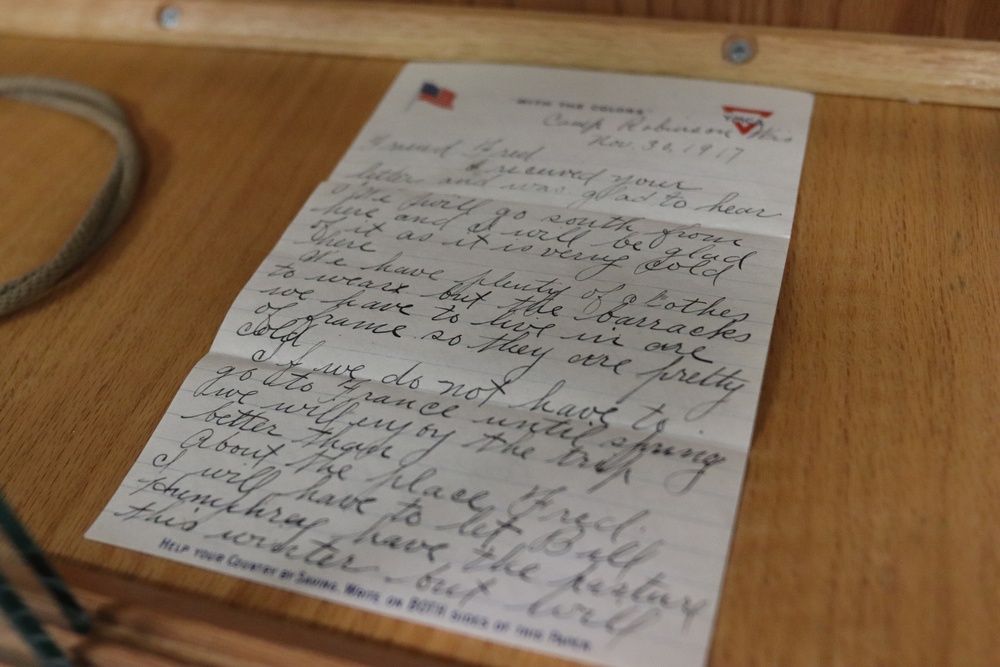 "WITH THE COLORS"
YMCA
Camp Robinson Wis
Nov. 30, 1917
Friend Fred
I received your
letter and was glad to hear
We will go south from
here and I will be glad
of it as it is very cold
there
We have plenty of clothes
to wear but the barracks
we have to live in are
of frame so they are pretty
cold
If we do not have to
go to France until spring
we will enjoy the trip
better than
About the place Fred.
I will have to let Bill
Humphrey have the pasture
this winter but will
HELP YOUR COUNTRY BY SAVING. WRITE ON BOTH SIDES OF THIS PAPER